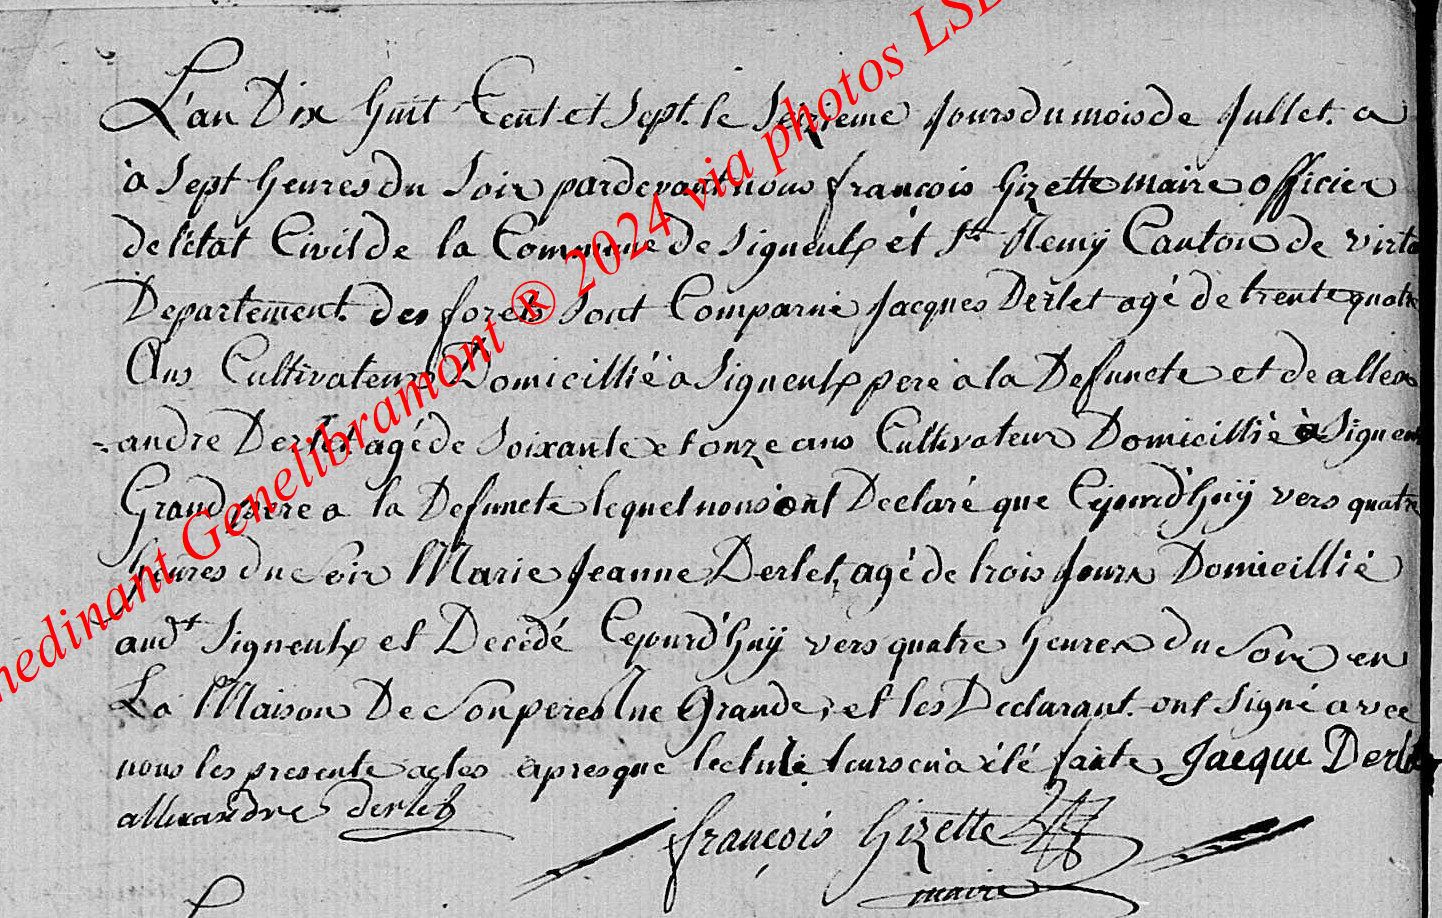 L'an Dix huit Cent et Sept. le Seizieme Jours du mois de Jullet. a
à Sept heures du Soir pardevant nous françois Gizette maire officier
de l'état Civil de la Commune de Signeulx et St. Remÿ Canton de virto
Departement. des forets Sont Comparue Jacques Derlet agé de trente quatre
Ans Cultivateur Domicillié a Signeulx pere a la Defuncte et de allex
-andre Derlet agé de Soixante et onze ans Cultivateur Domicillié à Signeu
Grand pere a la Defuncte lequel nous ont Declaré que Cejourd'huÿ vers quatre
heures du Soir Marie Jeanne Derlet, agé de trois Jours Domicillié
audt Signeulx et Decédé Cejourd'huÿ vers quatre heures du Soire en
La Maison De Son peres Rue Grande, et les Declarant. ont Signé avec
nous les presente actes apres que lecture leurs en a été faite Jacque Derlet
allexandre derlet
françois Gizette
maire
nedinant Genelibramont ® 2024 via photos LSD